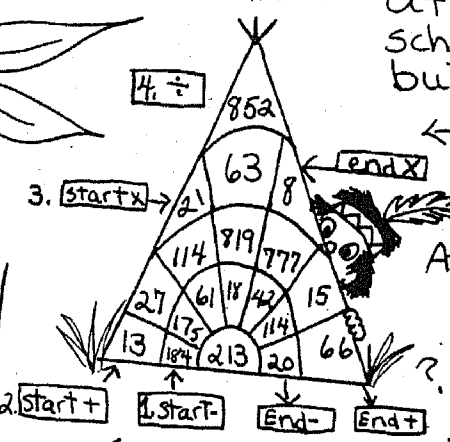 sch
bu
4. ÷
852
63
end x
3. start x
21
8
114
819
777
27
61
18
42
15
175
114
13
184
213
20
66
A
?
2. start +
1. start -
End -
End +